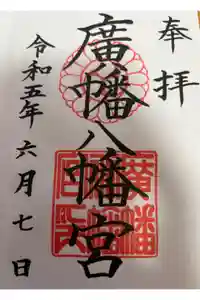 奉拝
廣幡八幡宮
令和五年六月七日